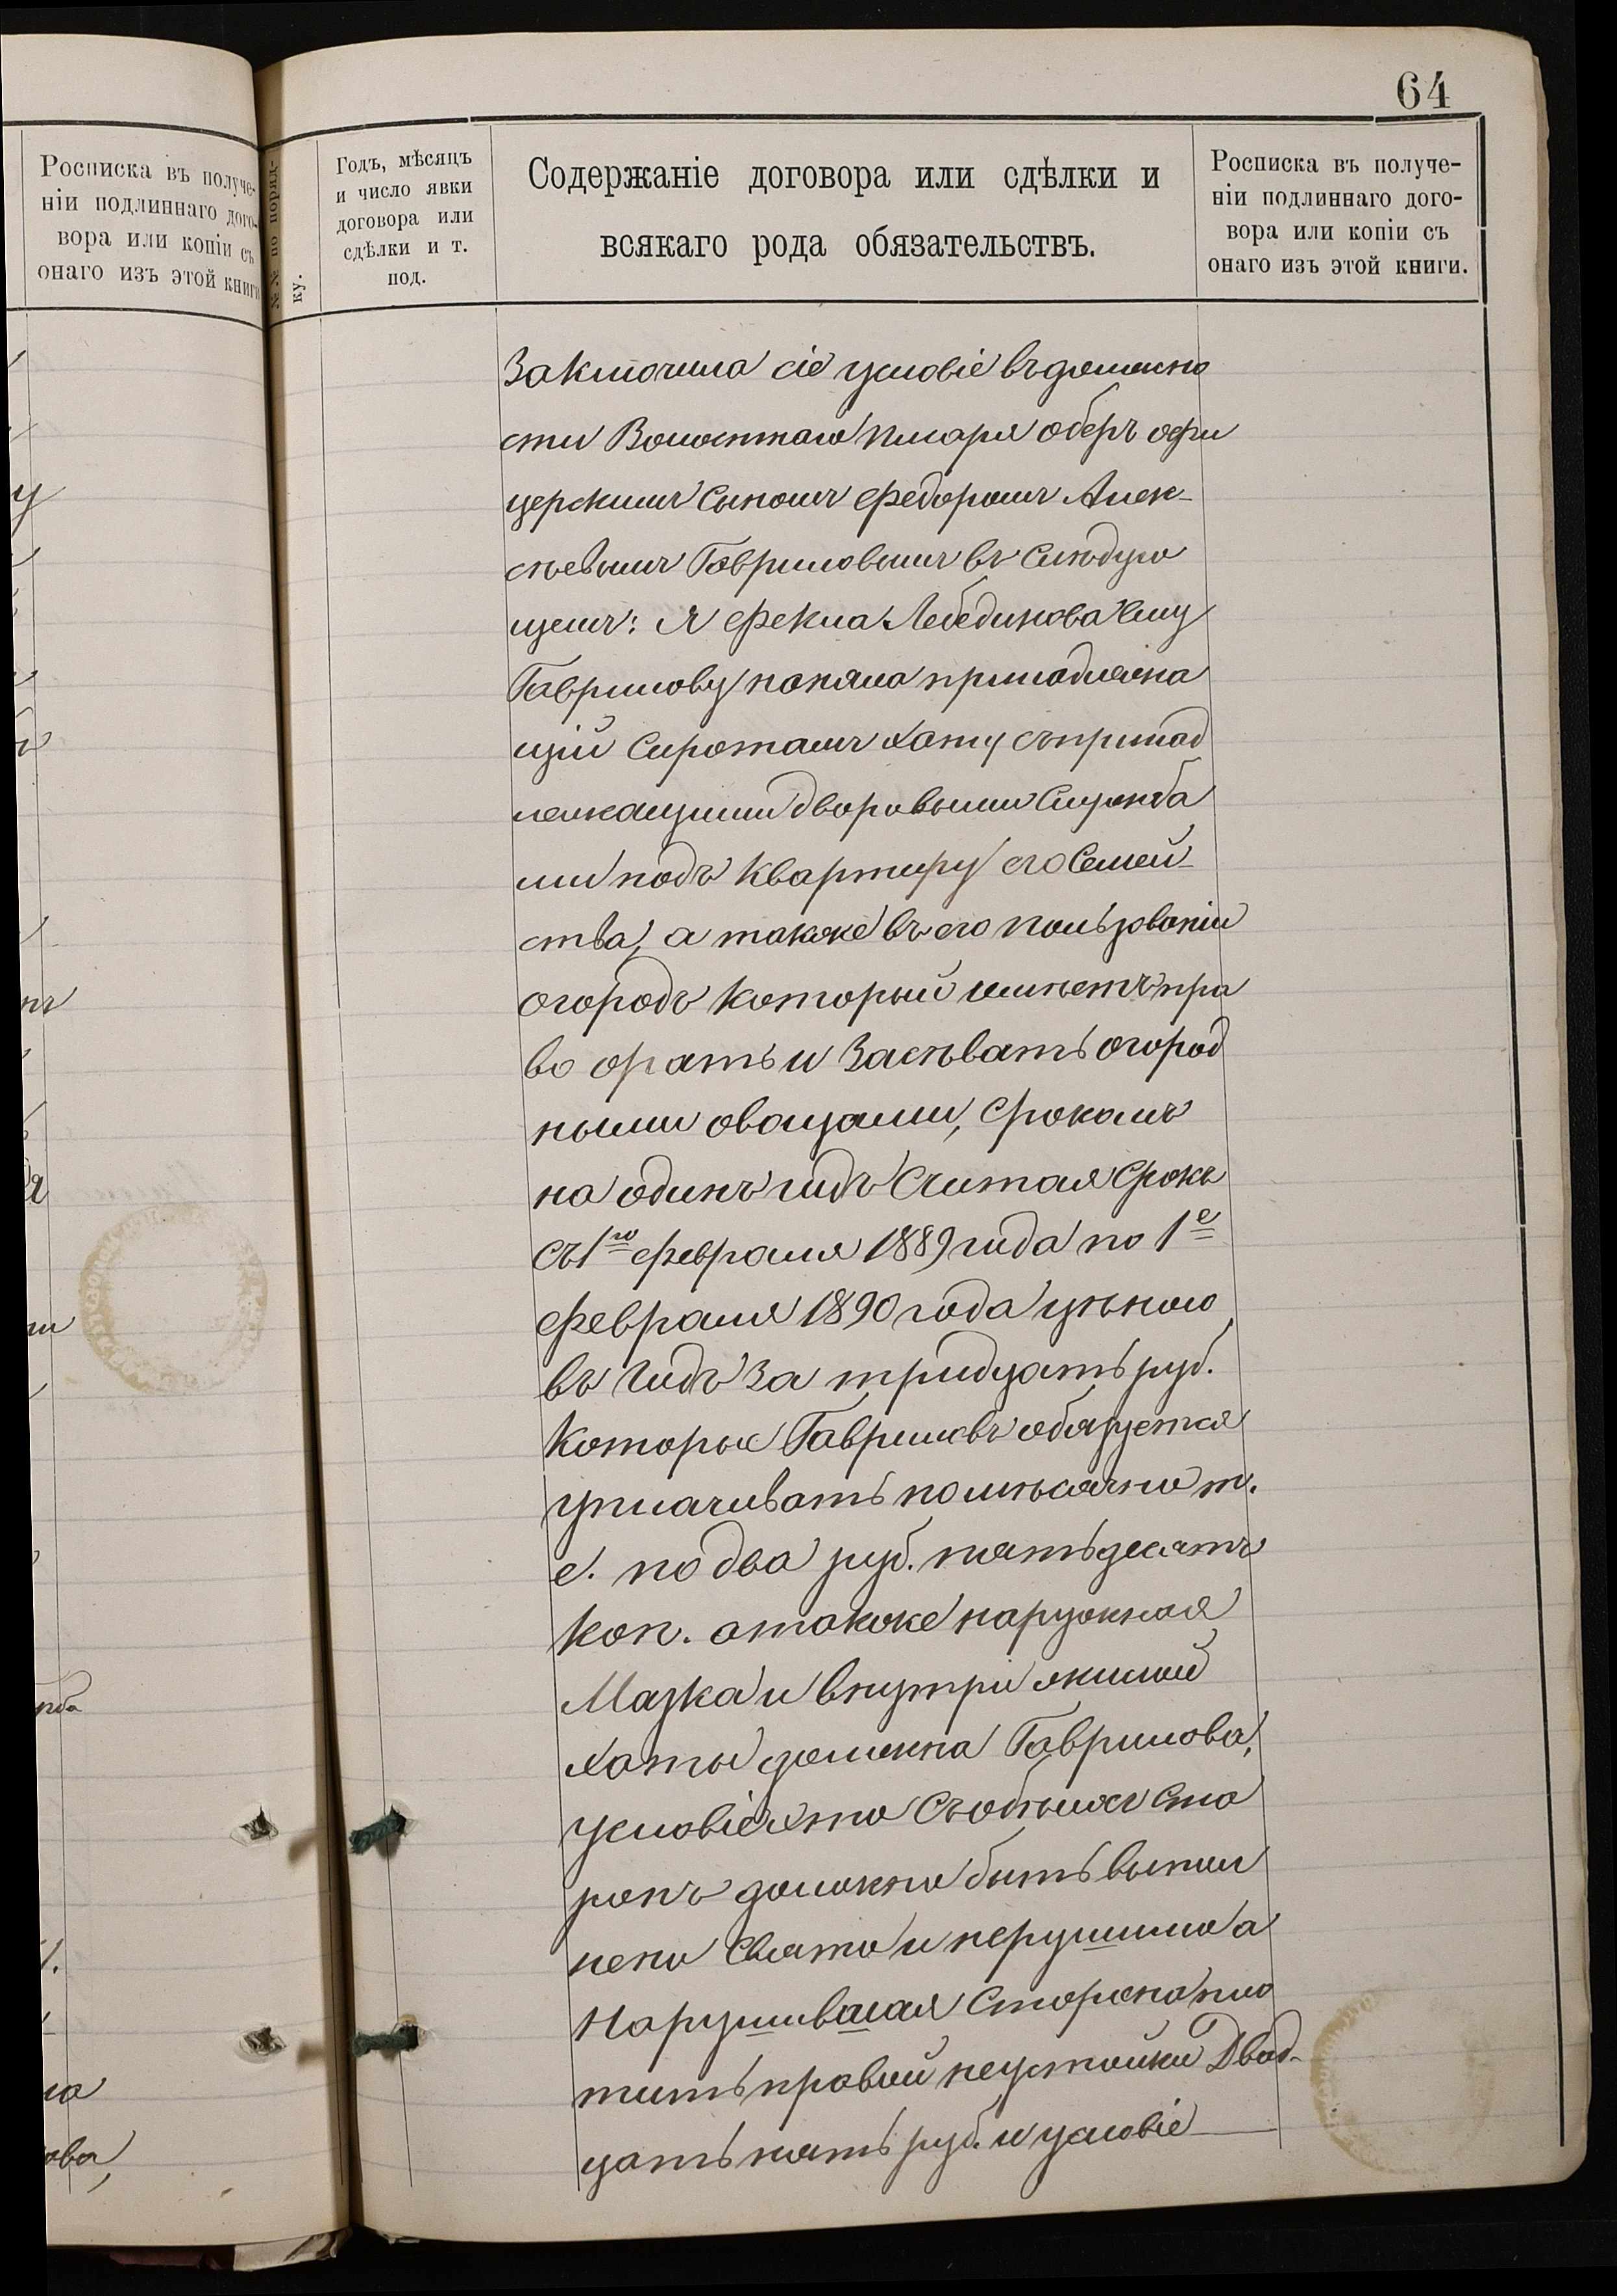 64
Росписка въ получе-
ніи подлиннаго дого-
вора или копіи съ
онаго изъ этой книги
№№ по поряд-
ку.
Годъ, мѣсяцъ
и число явки
договора или
сдѣлки и т.
под.
Содержаніе договора или сдѣлки и
всякаго рода обязательствъ.
Росписка въ получе-
ніи подлиннаго дого-
вора или копіи съ
онаго изъ этой книги.
Заключила сіе условіе въ должно
сти Волостнаго писаря оберъ офи
церскимъ сыномъ Федоромъ Алек-
сѣевымъ Гавриловымъ въ слѣдую
щемъ: Я Фекла Лебединова ему
Гаврилову наняла принадлежа
щій Сиротамъ хату съ принад
лежащими дворовыми служба
ми подъ квартиру его Семей-
ства, а также въ его пользованіи
огородъ который имѣетъ пра
во орать и засѣвать огород
ными овощами, срокомъ
на одинъ годъ считая срокъ
съ 1го февраля 1889 года по 1е
февраля 1890 года цѣною
въ годъ за тридцать руб.
которые Гавриловъ обязуется
уплачивать помѣсячно т.
е. по два руб. пятьдесятъ
коп. а также наружная
Мазка и внутри жилой
хаты должна Гаврилова,
условіе это съ обѣихъ сто
ронъ должно быть выпол
нено Свято и нерушимо а
Нарушившая Сторона пла
тить правой неустойки Двад-
цать пять руб. и условіе